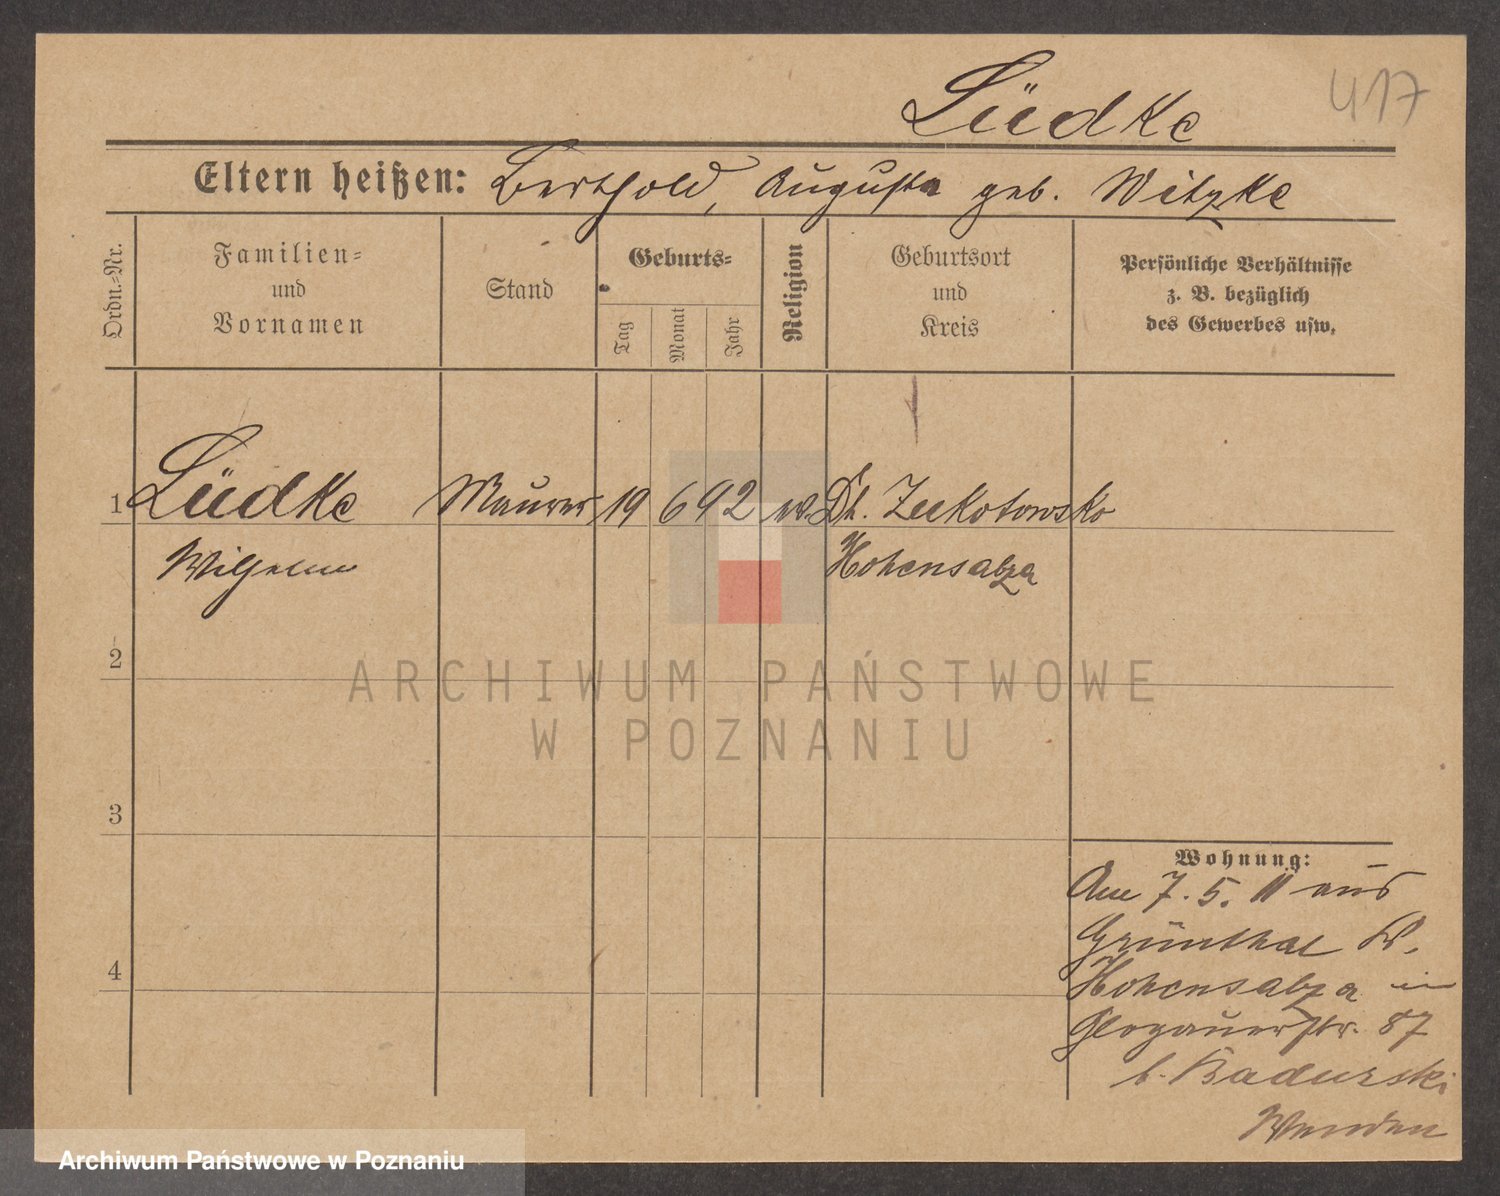 417
Lüdke
Eltern heißen: Berthold, Augusta geb. Witzke
Ordn.-Nr.
Familien-
und
Vornamen
Stand
Geburts-
Tag
Monat
Jahr
Religion
Geburtsort
und
Kreis
Persönliche Verhältnisse
z. B. bezüglich
des Gewerbes usw.
1 Lüdke Maurer 19 6 92 ev. Dt.
Wilhelm Hohensalza
2
3
4
Wohnung:
Am 7. 5. 11 aus
Grünthal K.
Hohensalza in
Glogauerstr. 87
b. Badurski
ARCHIWUM PAŃSTWOWE
W POZNANIU
Archiwum Państwowe w Poznaniu